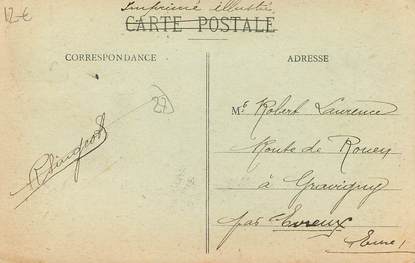 12-€
Imprimé illustré
CARTE POSTALE
CORRESPONDANCE
ADRESSE
27
Mr Robert Laurence
Route de Rouen
à Gravigny
par Evreux
Eure